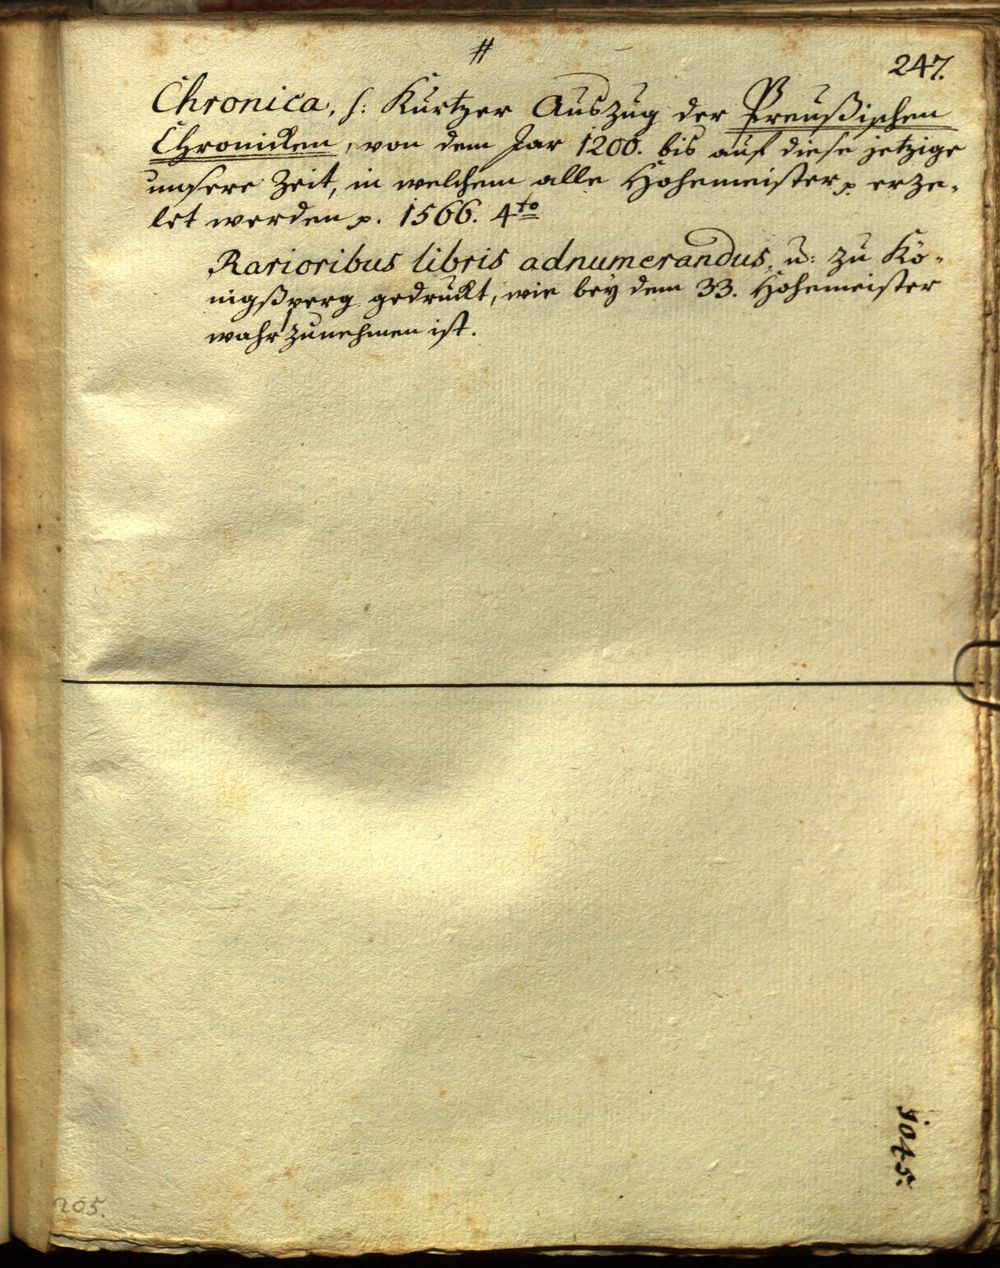 #
247.
Chronica, s: Kurtzer Auszug der Preußischen
Chroniken, von dem Jar 1200. bis auf diese jetzige
unsere Zeit, in welchem alle Hohemeister p. erze-
let werden p. 1566. 4to
Rarioribus libris adnumerandus, u: zu Kö-
nigßperg gedruckt, wie bey dem 33. Hohemeister
wahrzunehmen ist.
1045.
205.